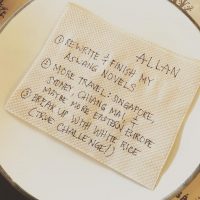 ALLAN
① REWRITE & FINISH MY
ASWANG NOVELS
② MORE TRAVEL: SINGAPORE,
SYDNEY, CHIANG MAI &
MAYBE MORE EASTERN EUROPE
③ BREAK UP WITH WHITE RICE
(TRUE CHALLENGE!)